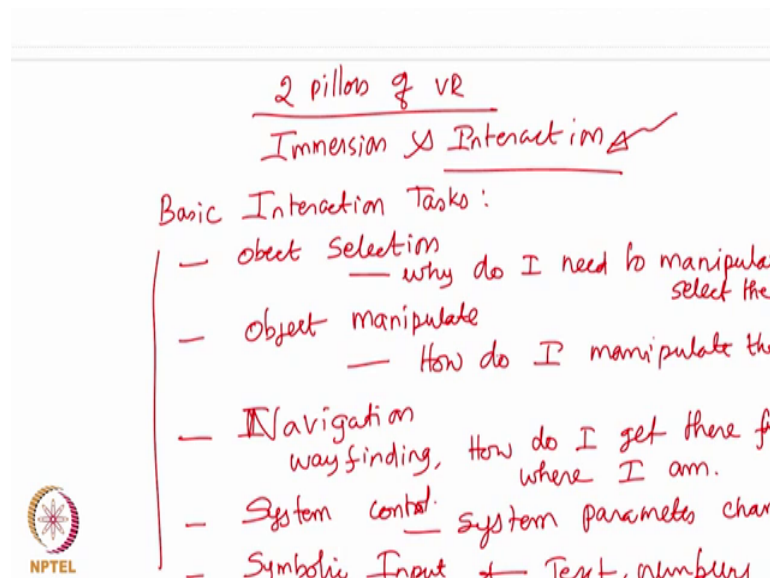 2 pillors of VR
Immersion & Interaction
Basic Interaction Tasks :
— obect Selection
— why do I need to manipula
select the
— Object manipulate
— How do I manipulate th
— Navigation
wayfinding, How do I get there f
where I am.
— System control.
— system parametes chan
— Symbolic Input ← Text, numbers
NPTEL